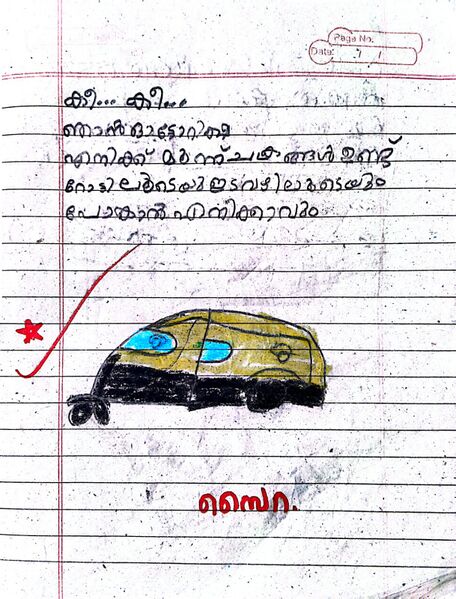 Page No.
Date:
കീ... കീ...
ഞാൻ ഓട്ടോറിക്ഷ
എനിക്ക് മൂന്ന് ചക്രങ്ങൾ ഉണ്ട്
റോഡിലൂടെയും ഇടവഴിലൂടെയും
പോകാൻ എനിക്കാവും
സൈറ.